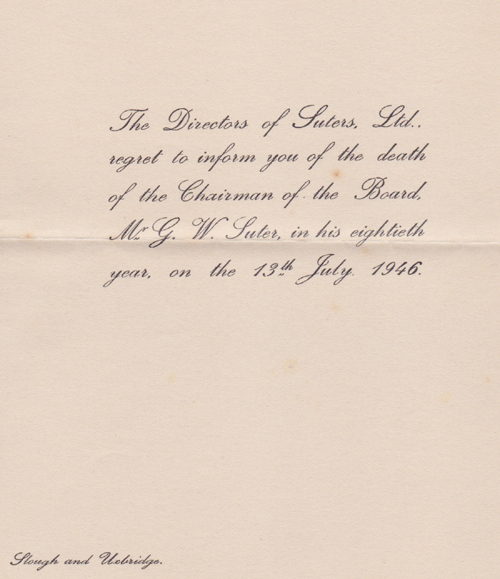 The Directors of Suters, Ltd.,
regret to inform you of the death
of the Chairman of the Board,
Mr G. W. Suter, in his eightieth
year, on the 13th July 1946.
Slough and Uxbridge.